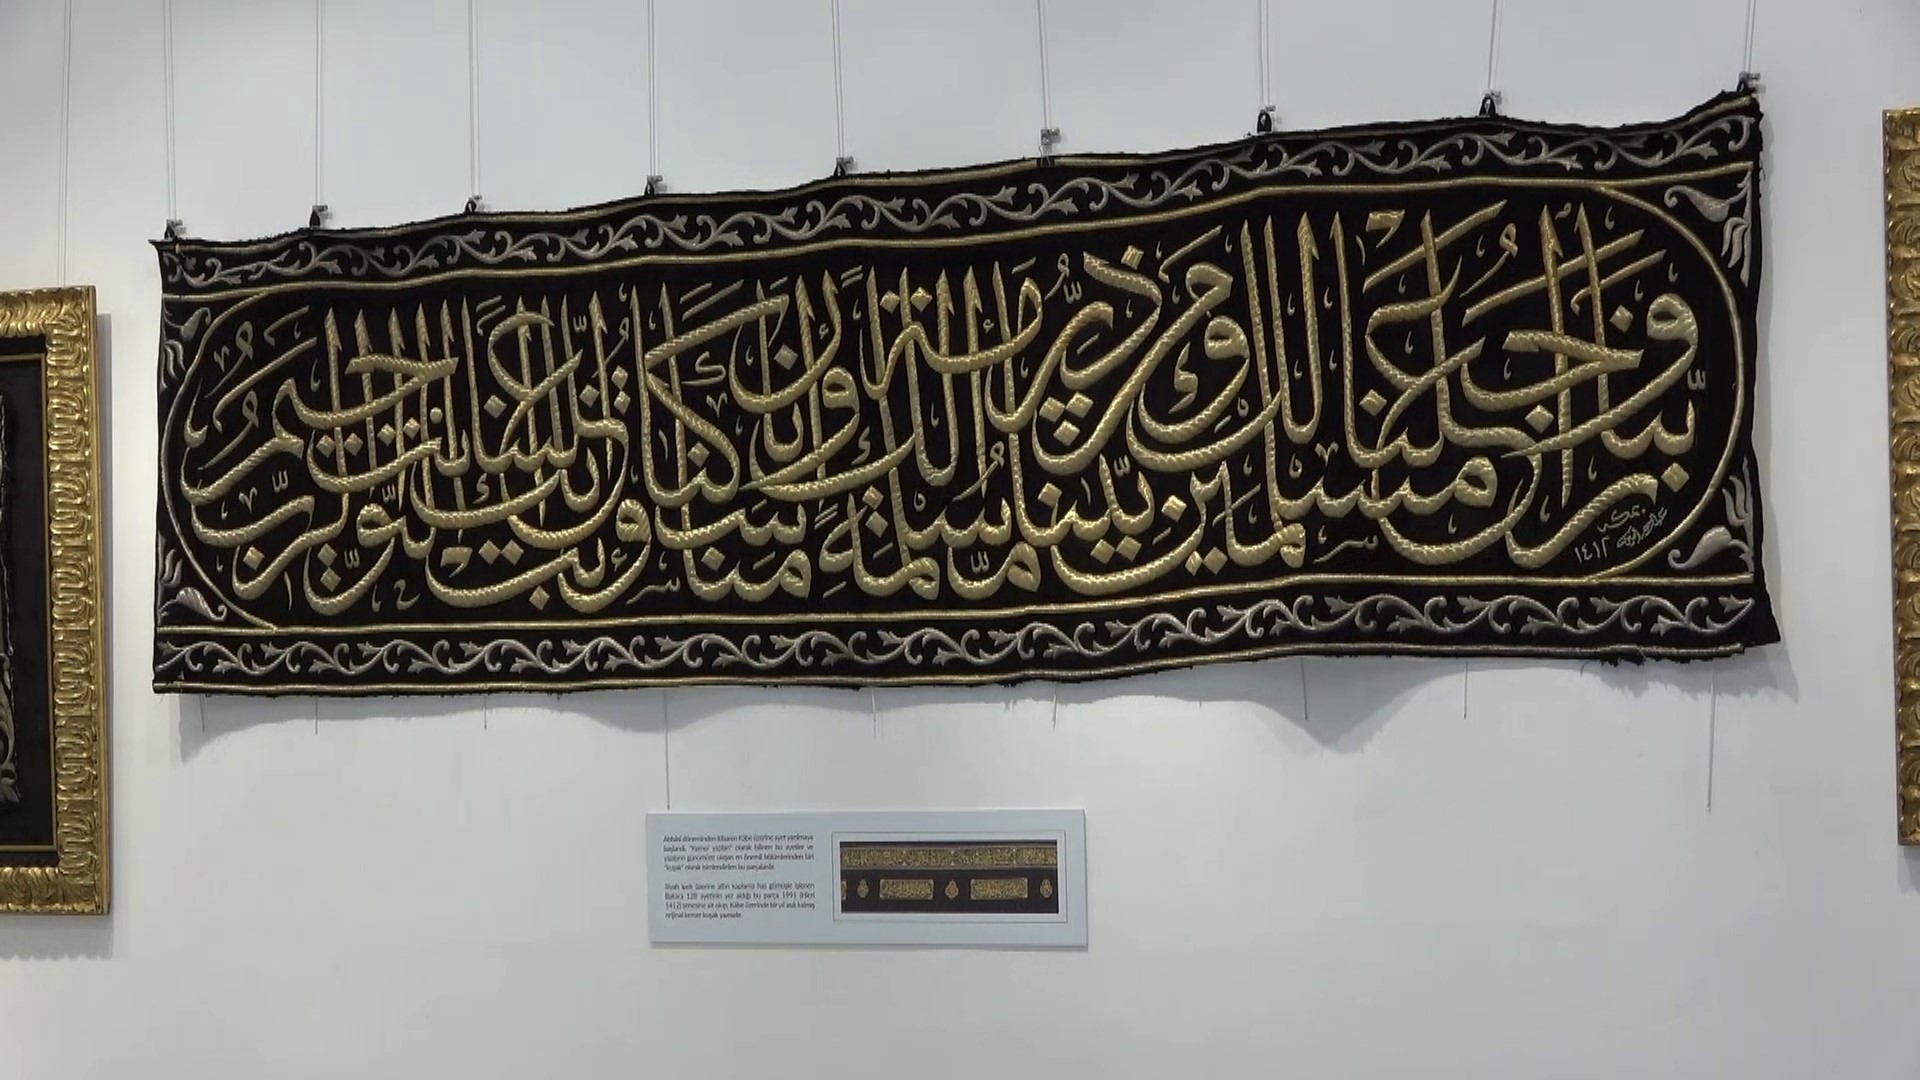 ربنا واجعلنا مسلمين لك ومن ذريتنا أمة مسلمة لك وأرنا مناسكنا وتب علينا إنك أنت التواب الرحيم
بمكة
١٤١٢
Abbâsî döneminden itibaren Kâbe üzerine ayet yazılmaya
başlandı. "Kemer yazıları" olarak bilinen bu ayetler ve
yazıların günümüze ulaşan en önemli bölümlerinden biri
"kuşak" olarak isimlendirilen bu parçalardır.
Siyah ipek üzerine altın kaplama has gümüşle işlenen
Bakara 128 ayetinin yer aldığı bu parça 1991 (Hicri
1412) senesine ait olup, Kâbe üzerinde bir yıl asılı kalmış
orijinal kemer kuşak yazısıdır.